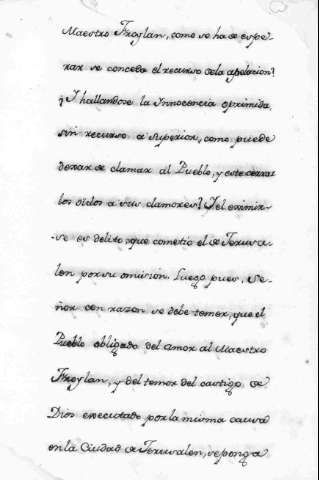 Maestro Froylan, como se ha de espe-
rar se conceda el recurso de la apelacion?
y I hallandose la Innocencia oprimida
sin recurso a Superior, como puede
dexar de clamar al Pueblo, y este cerrar
los oidos a sus clamores? I el eximir-
-se es delito, que cometió el de Jerusa-
len por su omision. Luego pues, Se-
ñor con razon se debe temer, que el
Pueblo obligado del amor al Maestro
Froylan, y del temor del castigo de
Dios executado por la misma causa
en la Ciudad de Jerusalen, se ponga